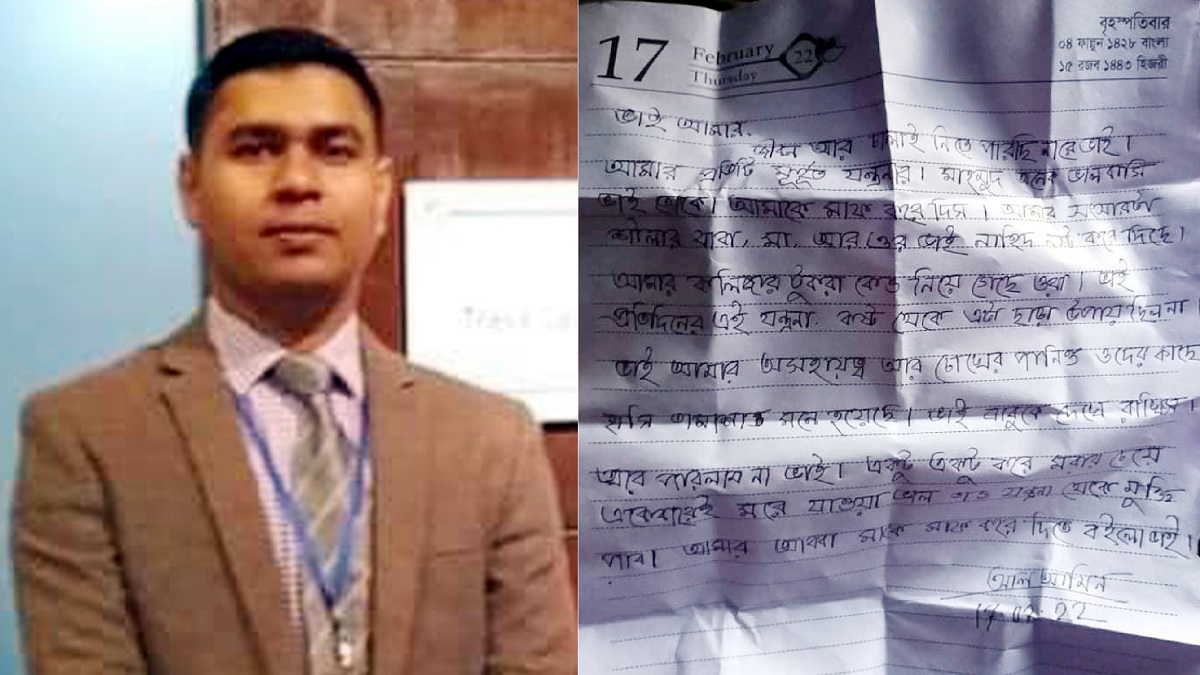 17
February
Thursday
22
বৃহস্পতিবার
০৪ ফাল্গুন ১৪২৮ বাংলা
১৫ রজব ১৪৪৩ হিজরী
ভাই আমার,
জীবন আর চালাই নিতে পারছি নারে ভাই।
আমার প্রতিটি মূহুর্ত যন্ত্রনার। মাহমুদ অনেক ভালবাসি
ভাই তোকে। আমাকে মাফ করে দিস। আমার সংসারটা
শীলার বাবা, মা, আর ওর ভাই নাহিদ নষ্ট করে দিছে।
আমার কলিজার টুকরা কেও নিয়ে গেছে ওরা। ভাই
প্রতিদিনের এই যন্ত্রনা, কষ্ট থেকে এটা ছাড়া উপায় ছিল না
ভাই আমার অসহায়ত্ব আর চোখের পানিও ওদের কাছে
হাসি তামাশার মনে হয়েছে। ভাই বাবুকে দেখে রাখিস।
আর পারলাম না ভাই। একটু একটু করে মরার চেয়ে
একেবারেই মরে যাওয়া ভাল এত যন্ত্রনা থেকে মুক্তি
পাব। আমার আব্বা মাকে মাফ করে দিতে বইলো ভাই।
আল আমিন
17.02.22